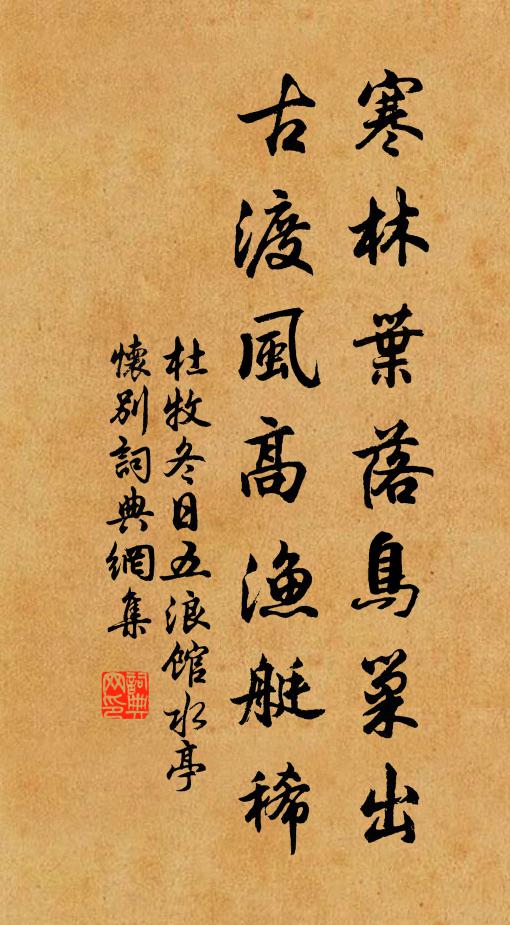 寒林葉落鳥巢出
古渡風高漁艇稀
杜牧冬日五浪館水亭
懷別詞典網集
詞典网印